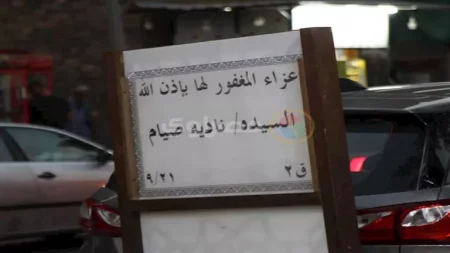 عزاء المغفور لها بإذن الله
السيده/ ناديه صيام
ق٢
٩/٢١